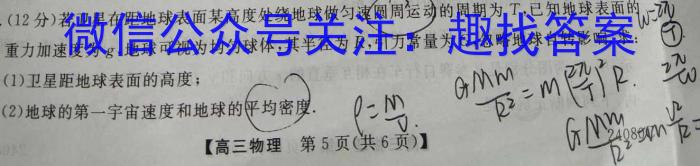 .(12分)若卫星在距地球表面某高度处绕地球做匀速圆周运动的周期为T,已知地球表面的
微信公众号关注:趣找答案
重力加速度为g,地球可视为均匀球体,其半径为R,引力常量为G,
(1)卫星距地球表面的高度;
(2)地球的第一宇宙速度和地球的平均密度.
ρ=M/V
GMm/R²=m(2π/T)²R.
【高三物理 第5页(共6页)】
24080